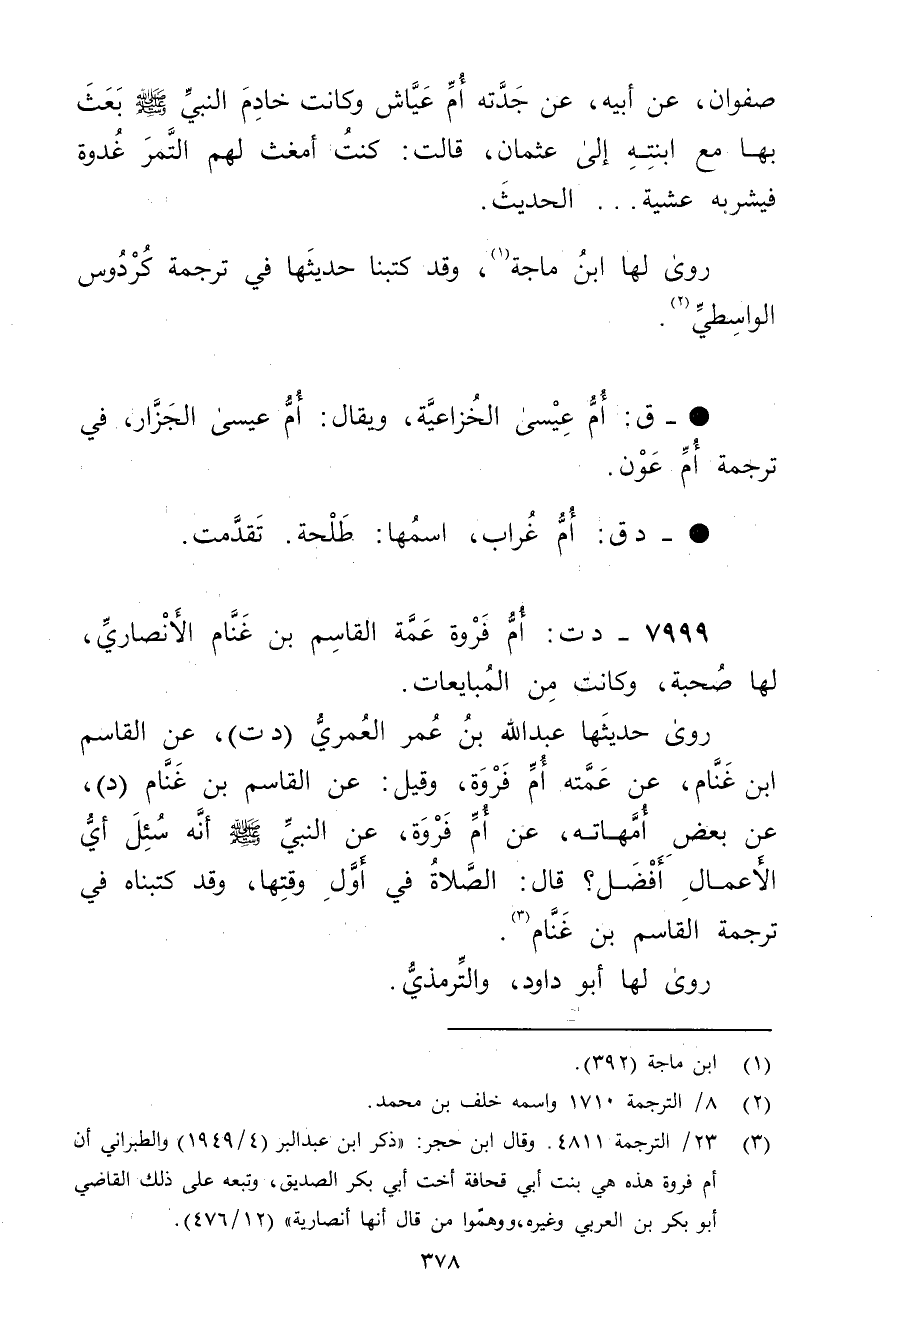 صفوان، عن أبيه، عن جَدَّته أُمِّ عَيَّاش وكانت خادِمَ النبيِّ ﷺ بَعَثَ
بهـا مع ابنتِـهِ إلىٰ عثمان، قالت: كنتُ أمغث لهم التَّمرَ غُدوة
فيشربه عشية... الحديثَ.
روىٰ لها ابنُ ماجة(١)، وقد كتبنا حديثَها في ترجمة كُرْدُوس
الواسِطيِّ(٢).
● ـ ق: أُمُّ عِيْسىٰ الخُزاعيَّة، ويقال: أُمُّ عيسىٰ الجَزَّار، في
ترجمة أُمِّ عَوْن.
● ـ د ق: أُمُّ غُراب، اسمُها: طَلْحة. تَقدَّمت.
٧٩٩٩ ـ د ت: أُمُّ فَرْوة عَمَّة القاسِم بن غَنَّام الأَنْصاريِّ،
لها صُحبة، وكانت مِن المُبايعات.
روىٰ حديثَها عبدالله بنُ عُمر العُمريُّ (د ت)، عن القاسم
ابن غَنَّام، عن عَمَّته أُمِّ فَرْوَة، وقيل: عن القاسم بن غَنَّام (د)،
عن بعضِ أُمَّهـاتـه، عن أُمِّ فَرْوَة، عن النبيِّ ﷺ أنَّه سُئِلَ أيُّ
الأَعمـالِ أَفْضَـل؟ قال: الصَّلاةُ في أَوَّلِ وقتِها، وقد كتبناه في
ترجمة القاسم بن غَنَّام(٣).
روىٰ لها أبو داود، والتِّرمذيُّ.
(١) ابن ماجة (٣٩٢).
(٢) ٨/ الترجمة ١٧١٠ واسمه خلف بن محمد.
(٣) ٢٣/ الترجمة ٤٨١١. وقال ابن حجر: «ذكر ابن عبدالبر (٤/١٩٤٩) والطبراني أن
أم فروة هذه هي بنت أبي قحافة أخت أبي بكر الصديق، وتبعه على ذلك القاضي
أبو بكر بن العربي وغيره،ووهّموا من قال أنها أنصارية» (١٢/٤٧٦).
٣٧٨